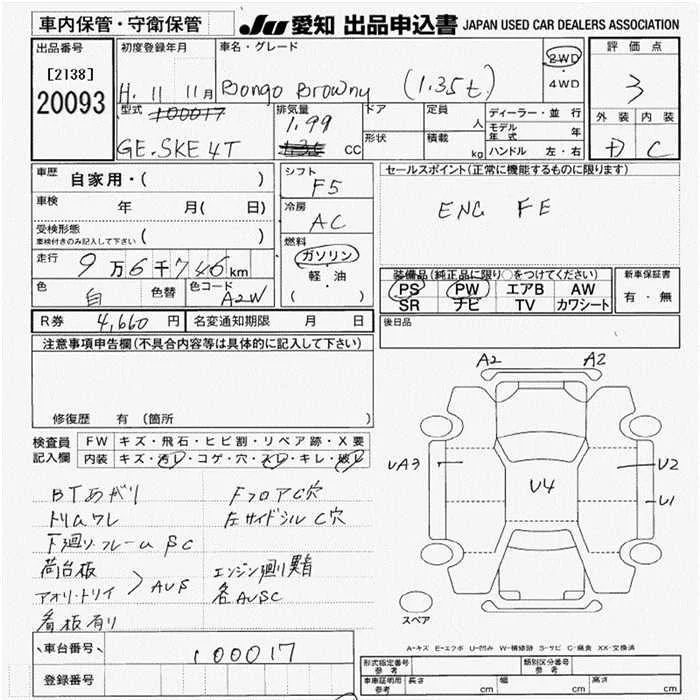 車内保管・守衛保管
JU 愛知 出品申込書 JAPAN USED CAR DEALERS ASSOCIATION
出品番号
[2138]
20093
初度登録年月
H. 11 11月
車名・グレード
Bongo Browny (1.35t)
2WD
・
4WD
評価点
3
外装 内装
D C
型式 100017
GE.SKE4T
排気量
1.99
1.35 CC
ドア
形状
定員 人
積載 kg
ディーラー・並行
モデル年式 年
ハンドル 左・右
車歴 自家用・( )
車検 年 月( 日)
受検形態
車検付きのみ記入して下さい ( )
走行 9万6千746km
色 白 色替
色コード A2W
シフト
F5
冷房
AC
燃料
ガソリン
軽・油
( )
セールスポイント(正常に機能するものに限ります)
ENG FE
装備品(純正品に限り○をつけてください)
PS PW エアB AW
SR ナビ TV カワシート
新車保証書
有・無
R券 4,660 円 名変通知期限 月 日
後日品
注意事項申告欄(不具合内容等は具体的に記入して下さい)
修復歴 有 (箇所 )
検査員記入欄
FW キズ・飛石・ヒビ割・リペア跡・X要
内装 キズ・汚レ・コゲ・穴・スレ・キレ・破レ
BTあがり
トリムワレ
下廻りフレームSC
荷台板
アオリ・トリイ
> AUS
看板有り
FフロアC穴
左サイドシルC穴
エンジン廻り異音
各AUSC
車台番号 100017
登録番号
A2 A2
UA3 U4 U2
U1
スペア
A-キズ E-エクボ U-凹み W-補修跡 S-サビ C-腐食 XX-交換済
形式指定番号 参考
類別区分番号 参考
車庫証明用 参考 長さ cm 幅 cm 高さ cm